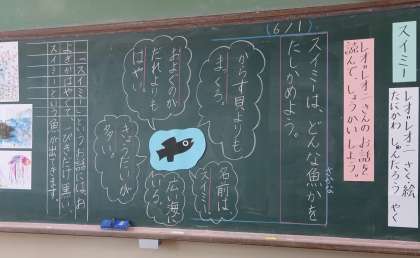 スイミー
レオ=レオニ さく絵
たにかわ しゅんたろう やく
レオ=レオニさんのお話を
読んで、しょうかいしよう。
(6/1)
スイミーは、どんな魚かを
さかな
たしかめよう。
からす貝よりも
まっくろ。
名前は
スイミー。
広い海に
いる。
およぐのが
だれよりも
はやい。
きょうだいが
多い。
「スイミー」というお話には、お
よぎがはやくて一ぴきだけ黒い
スイミーという魚が出てきます